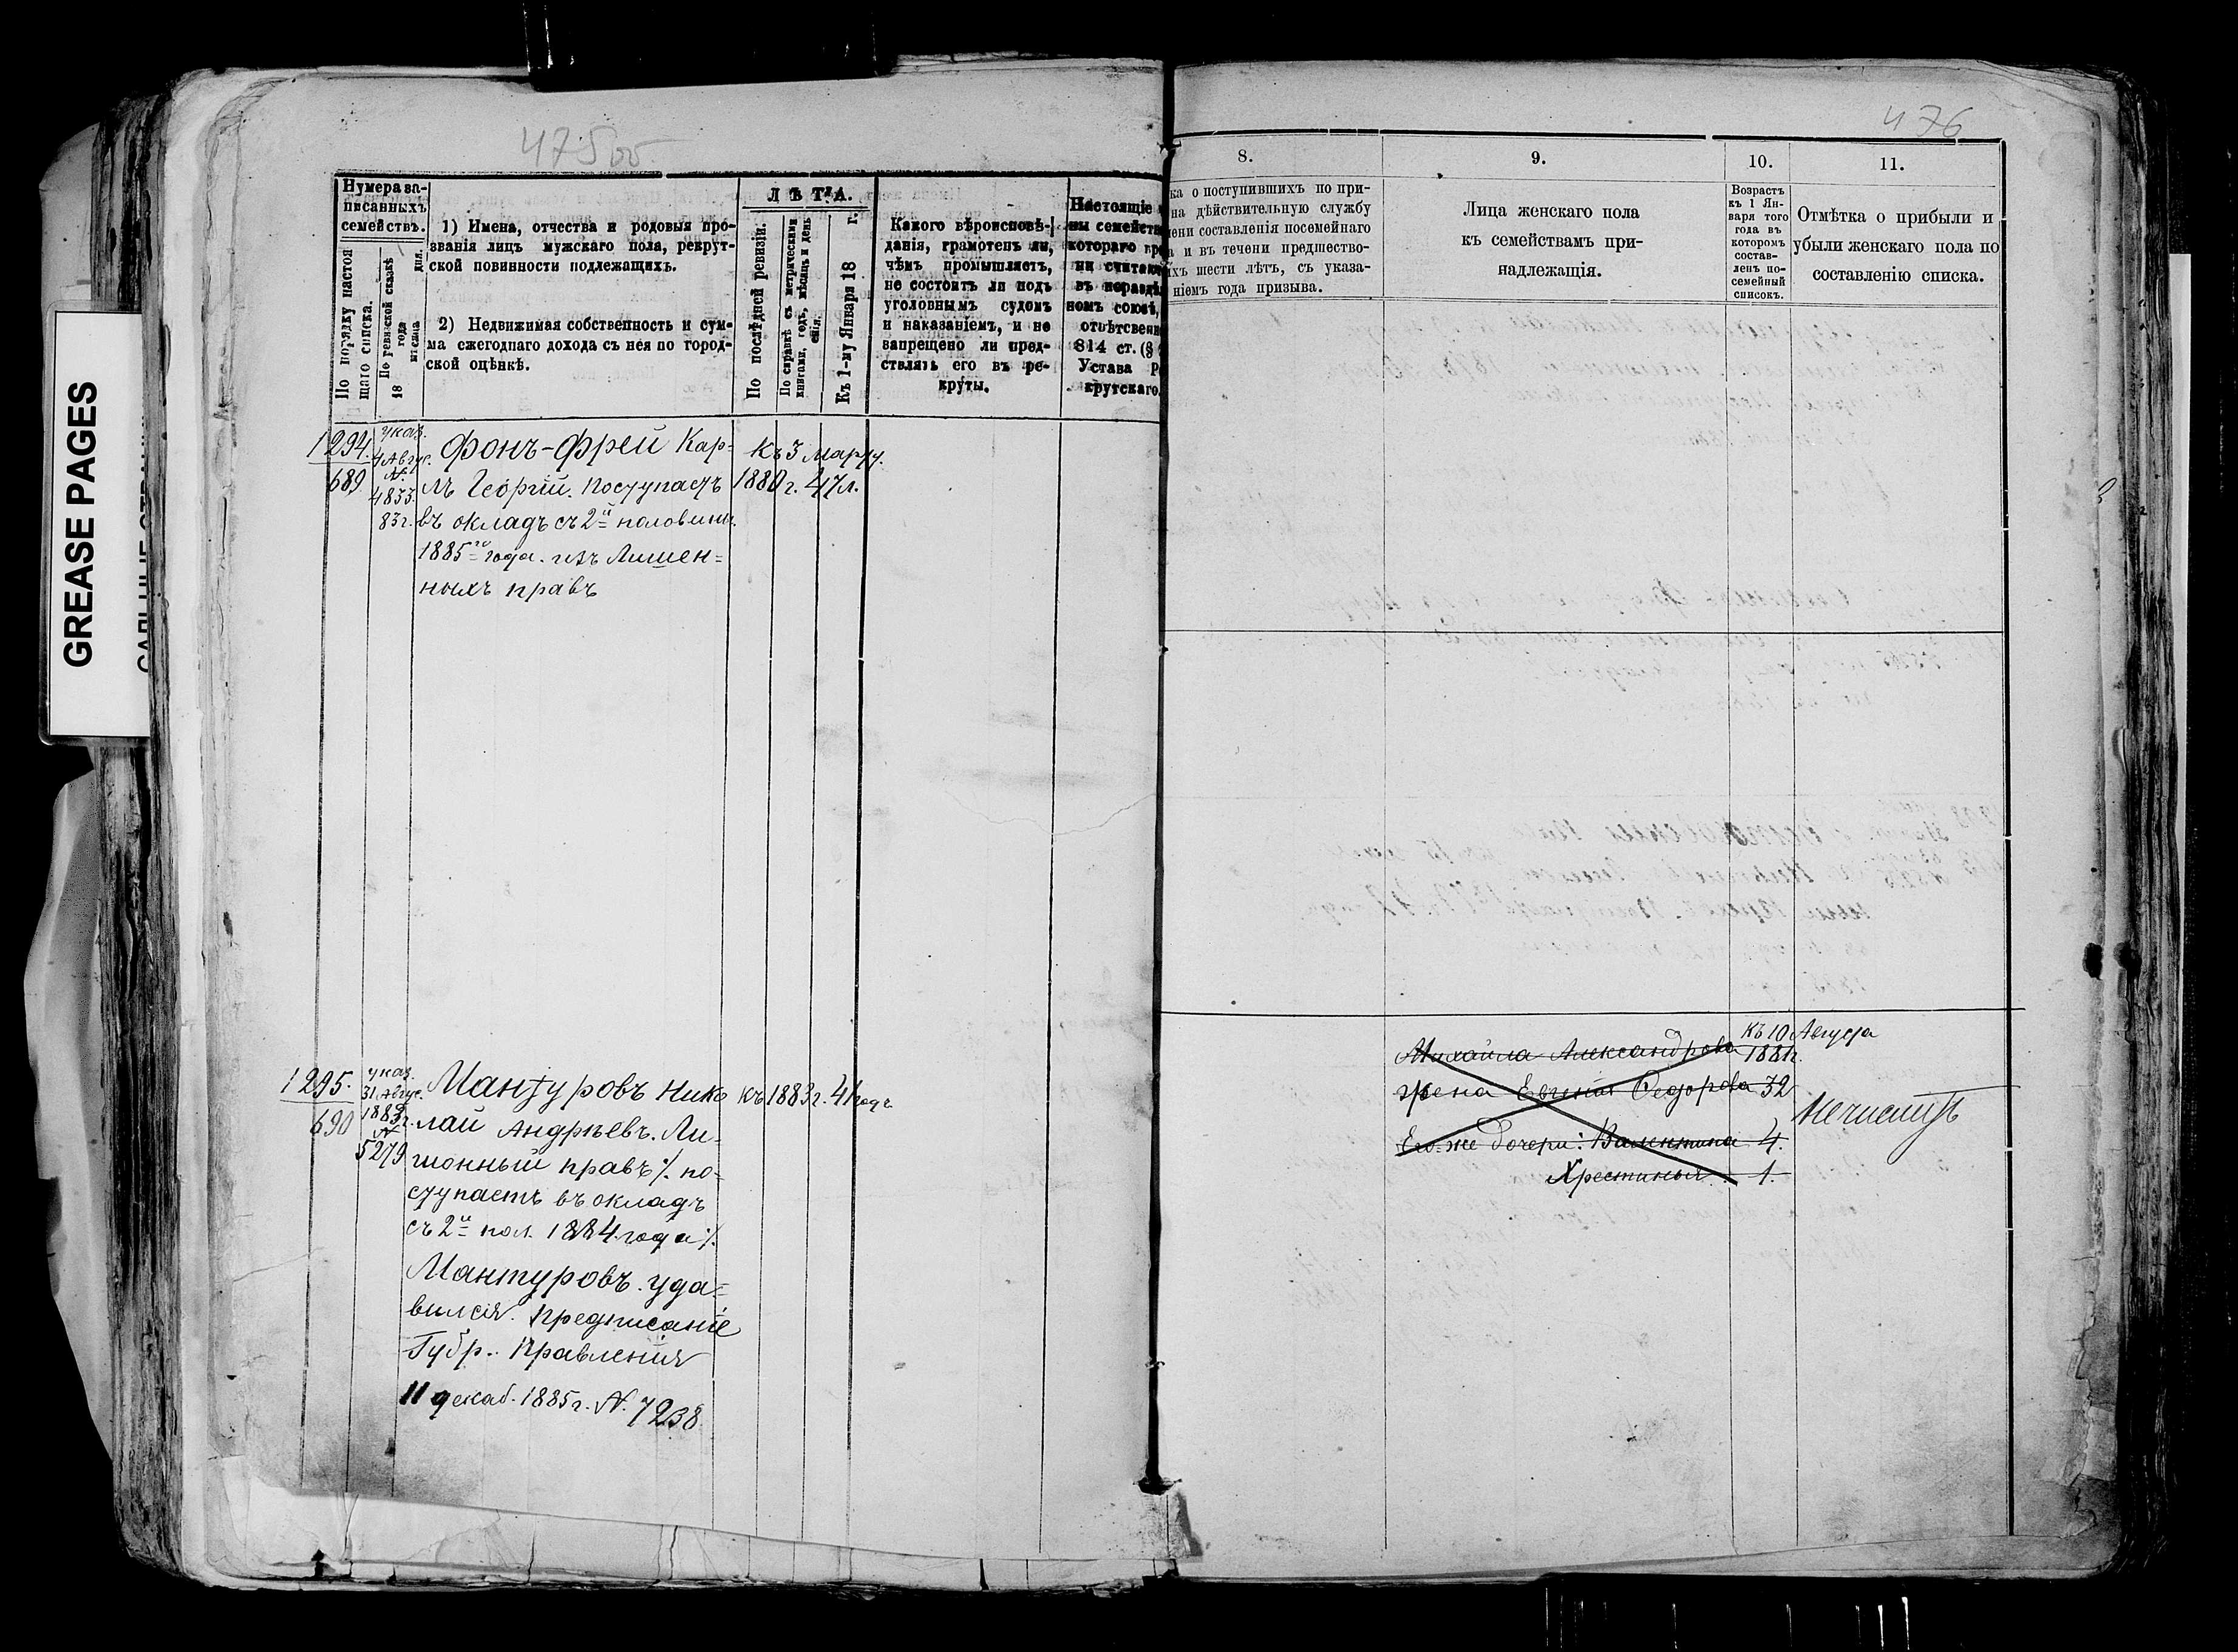 475об
Нумера за-
писанныхъ
семействъ.
По порядку настоя
щаго списка.
По ревизской сказкѣ
18 года
мѣсяца дня.
1) Имена, отчества и родовыя про-
званія лицъ мужскаго пола, рекрут-
ской повинности подлежащихъ.
2) Недвижимая собственность и сум-
ма ежегоднаго дохода съ нея по город-
ской оцѣнкѣ.
ЛѢТА.
По послѣдней ревизіи.
По справкѣ съ метрическими
книгами, годъ, мѣсяцъ и день
Къ 1-му Января 18 г.
Какого вѣроисповѣ-
данія, грамотенъ ли,
чѣмъ промышляетъ,
не состоитъ ли подъ
уголовнымъ судомъ
и наказаніемъ, и не
запрещено ли пред-
ствлять его въ ре-
круты.
Настоящіе
ны семейств
котораго
ни считаю
въ нераздѣ
номъ союзѣ,
отвѣтсвенн
814 ст. (§
Устава Р
крутскаго.
1294.
689
указ.
4 Авгус.
№
4833.
83 г.
Фонъ-Фрей Кар-
лъ Георгій. Поступаетъ
въ окладъ съ 2й половины
1885го года. изъ Лишен=
ныхъ правъ
къ 3 Марту.
1880 г. 47 л.
1295.
690
указ.
31 Авгус.
1883 г.
№
5279
Мантуровъ Нико
лай Андрѣевъ. Ли-
шонный правъ ⁒ по-
ступаетъ въ окладъ
съ 2й пол. 1884 года ⁒
Мантуровъ. уда=
вился. Предписаніе
Губр. Правленія
11 декаб. 1885 г. №. 7238
къ 1883 г. 41 годъ
476
8.
ка о поступившихъ по при-
на дѣйствительную службу
ени составленія посемейнаго
а и въ течени предшество-
ихъ шести лѣтъ, съ указа-
ніемъ года призыва.
9.
Лица женскаго пола
къ семействамъ при-
надлежащія.
10.
Возрастъ
къ 1 Ян-
варя того
года въ
которомъ
состав-
ленъ по-
семейный
списокъ.
11.
Отмѣтка о прибыли и
убыли женскаго пола по
составленію списка.
къ 10 Августа
Михайла Александрова 1881 г.
жена Евгенія Федорова 32
Его-же дочери: Валентина 4.
Хрестинья 1.
GREASE PAGES